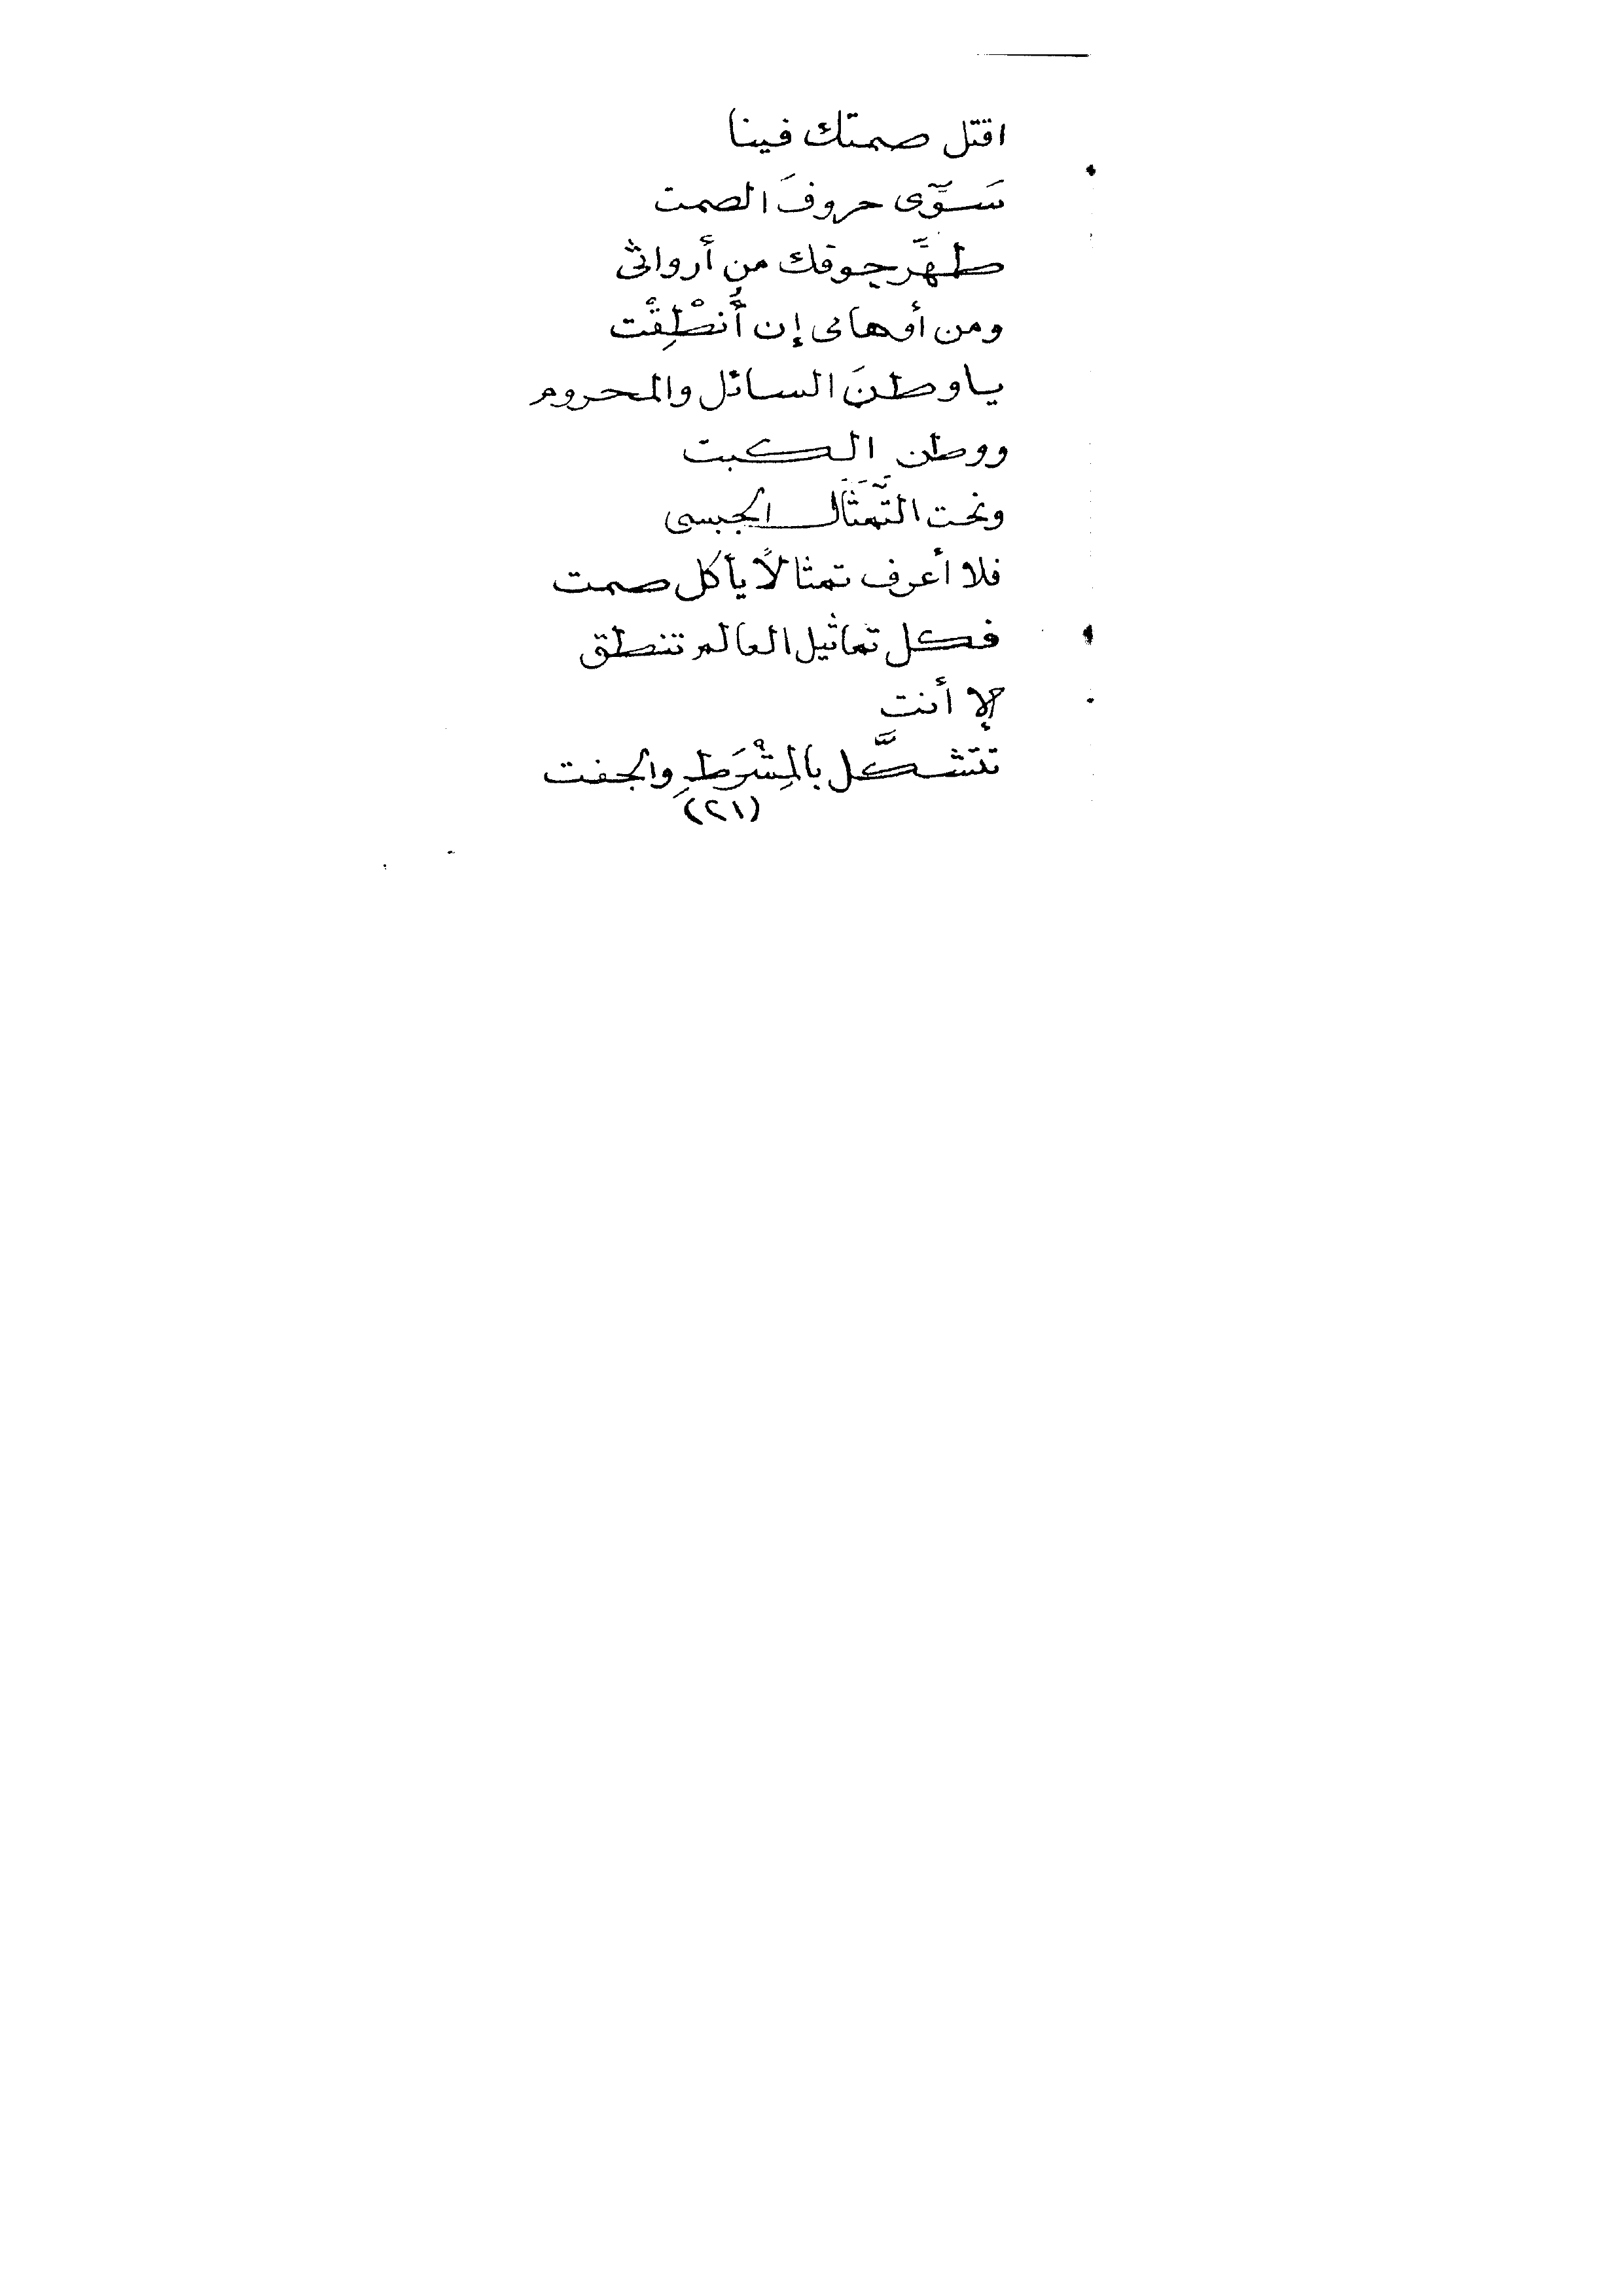 اقتل صمتك فينا
سَوِّى حروفَ الصمت
طهَّر جوفك من أرواثى
ومن أوهامى إن أُنطْقِتْ
ياوطنَ السائل والمحروم
ووطن الكبت
ونحت التَّمَثَال الجبسى
فلا أعرف تمثالاً يأكل صمت
فكل تماثيل العالم تنطق
إلا أنت
تتشكَّل بالمِشْرَطِ والجفت
(٢١)